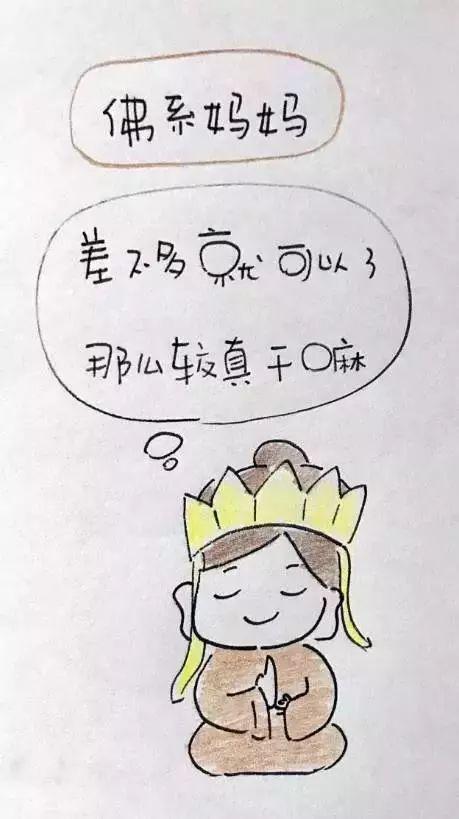 佛系妈妈
差不多就可以了
那么较真干嘛